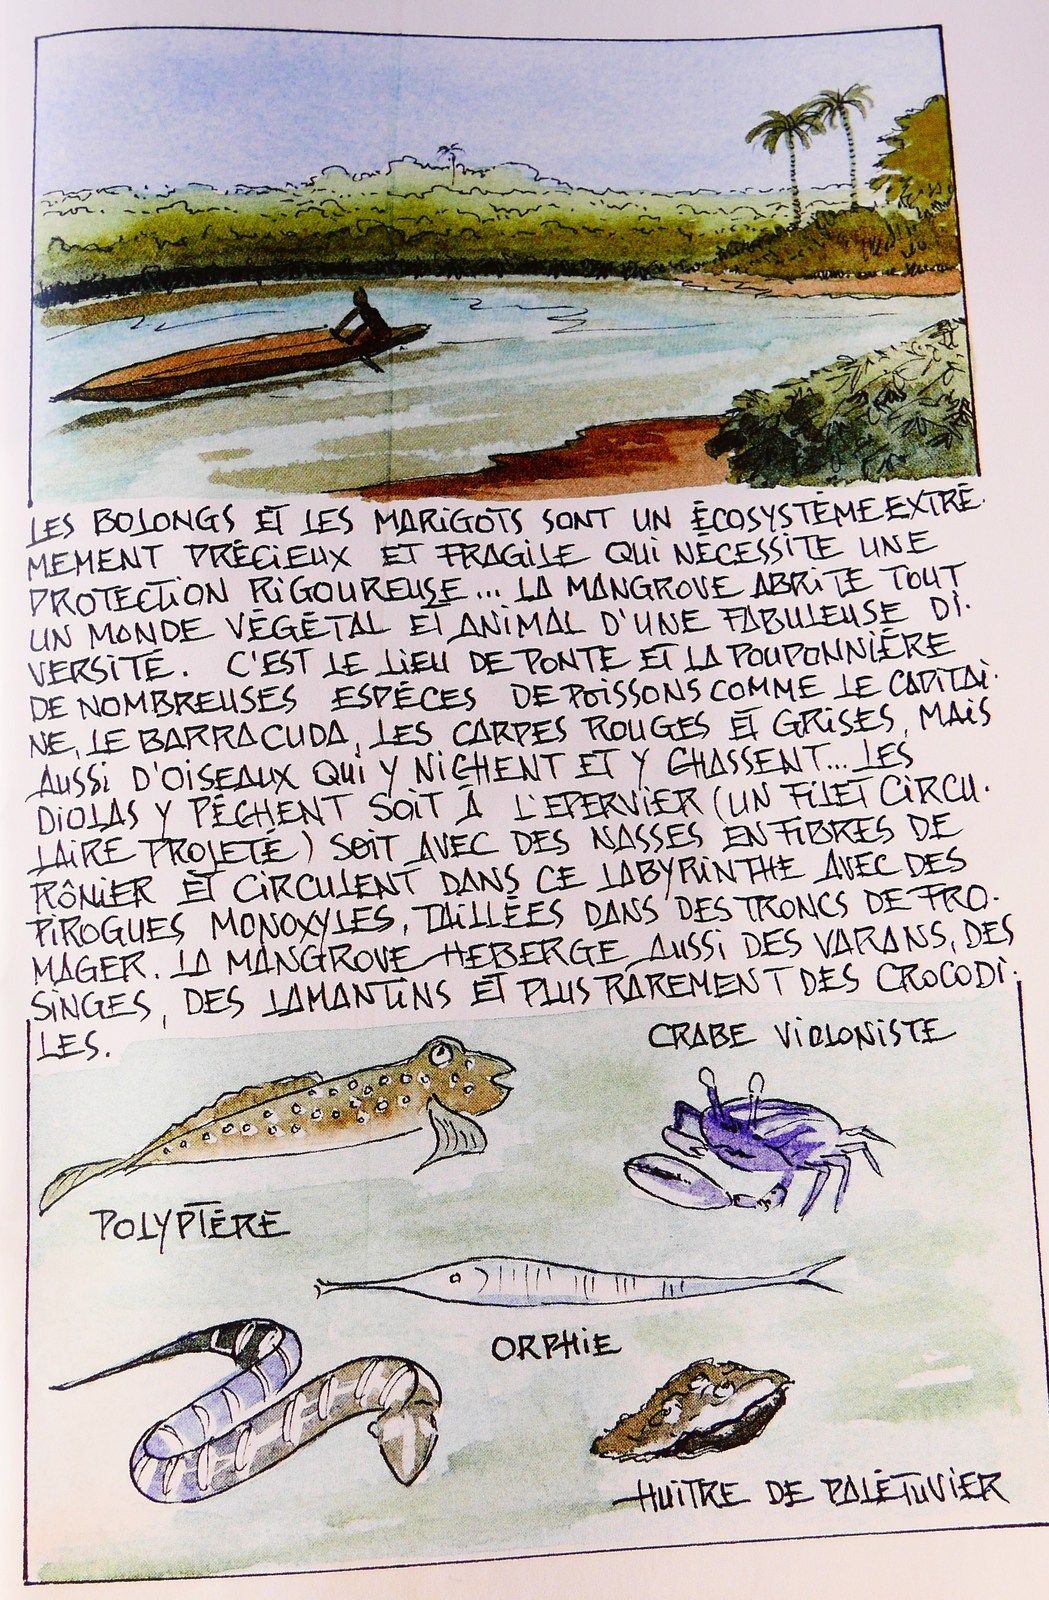 LES BOLONGS ET LES MARIGOTS SONT UN ÉCOSYSTÈME EXTRÊ.
MEMENT PRÉCIEUX ET FRAGILE QUI NÉCESSITE UNE
PROTECTION RIGOUREUSE... LA MANGROVE ABRITE TOUT
UN MONDE VÉGÉTAL ET ANIMAL D'UNE FABULEUSE DI.
VERSITÉ. C'EST LE LIEU DE PONTE ET LA POUPONNIÈRE
DE NOMBREUSES ESPÈCES DE POISSONS COMME LE CAPITAI.
NE, LE BARRACUDA, LES CARPES ROUGES ET GRISES, MAIS
AUSSI D'OISEAUX QUI Y NICHENT ET Y CHASSENT... LES
DIOLAS Y PÊCHENT SOIT À L'EPERVIER (UN FILET CIRCU.
LAIRE PROJETÉ) SOIT AVEC DES NASSES EN FIBRES DE
RÔNIER ET CIRCULENT DANS CE LABYRINTHE AVEC DES
PIROGUES MONOXYLES, TAILLÉES DANS DES TRONCS DE FRO.
MAGER. LA MANGROVE HEBERGE AUSSI DES VARANS, DES
SINGES, DES LAMANTINS ET PLUS RAREMENT DES CROCODI.
LES.
CRABE VIOLONISTE
POLYPTÈRE
ORPHIE
HUITRE DE PALÉTUVIER